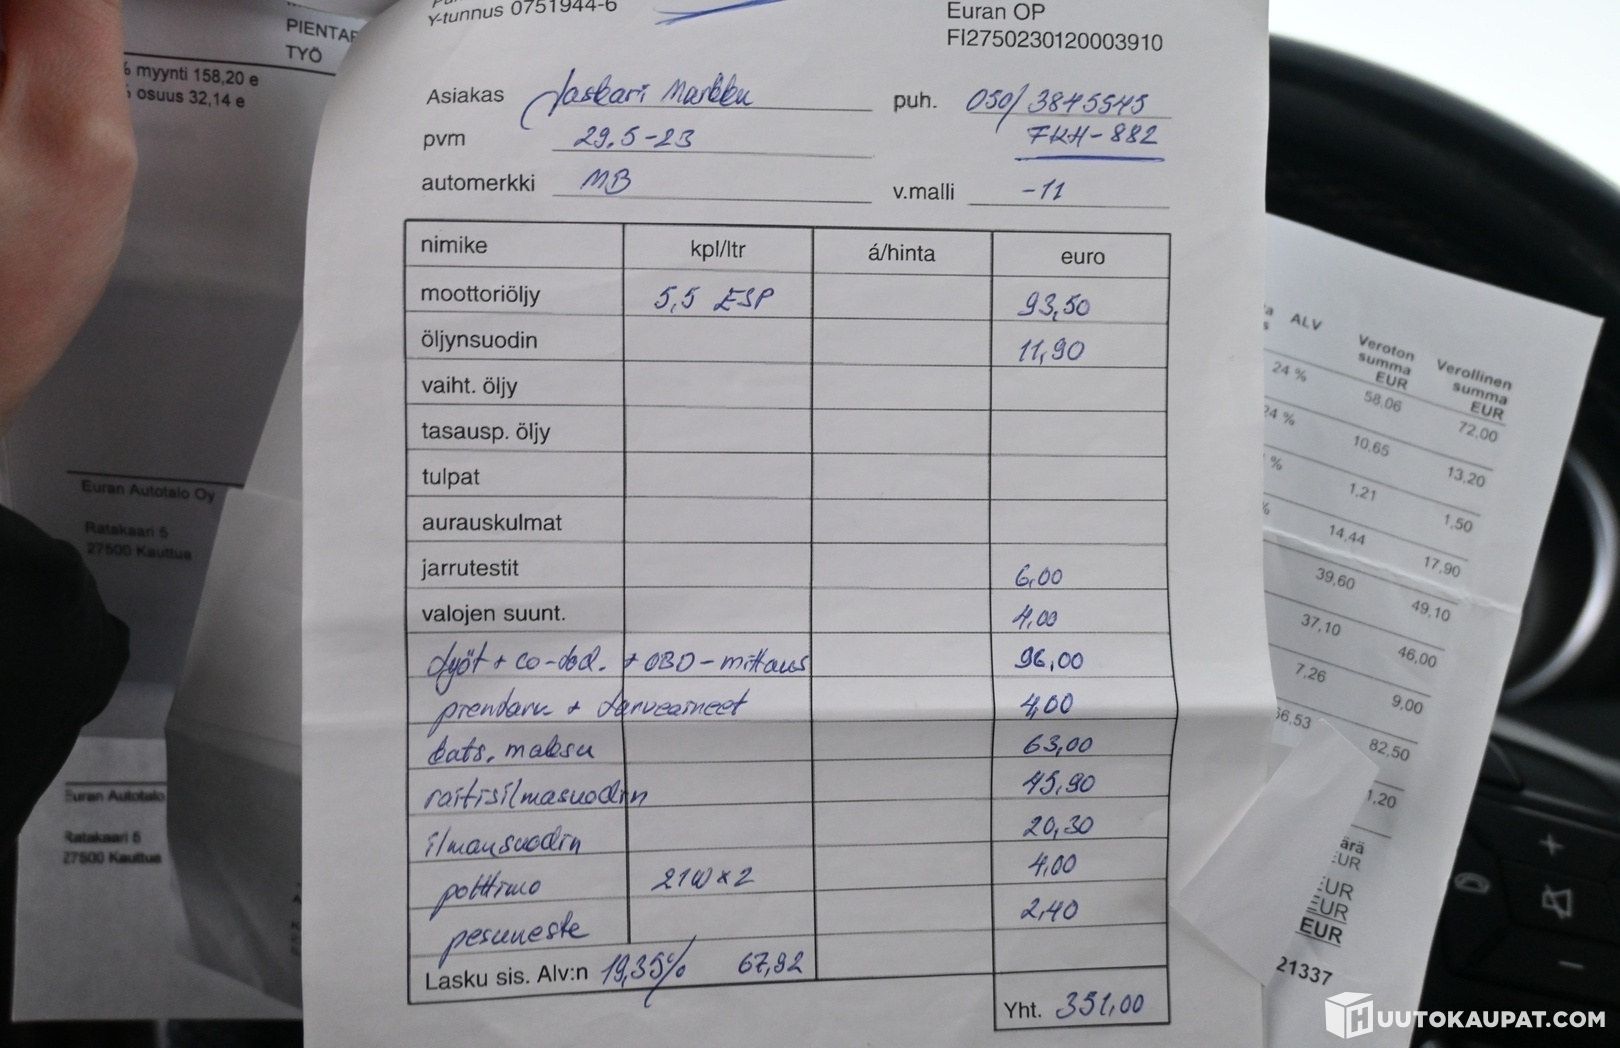 PIENTAR
TYÖ
% myynti 158,20 e
% osuus 32,14 e
Euran Autotalo Oy
Ratakaari 5
27500 Kauttua
Euran Autotalo
Ratakaari 5
27500 Kauttua
Y-tunnus 0751944-6
Euran OP
FI2750230120003910
Asiakas Jaskari Markku puh. 050/3845545
pvm 29.5-23 FKH-882
automerkki MB v.malli -11
nimike kpl/ltr á/hinta euro
moottoriöljy 5,5 ESP 93,50
öljynsuodin 11,90
vaiht. öljy
tasausp. öljy
tulpat
aurauskulmat
jarrutestit 6,00
valojen suunt. 4,00
työt + co-tod. + OBD-mittaus 96,00
pientarv + tarveaineet 4,00
kats. maksu 63,00
raitisilmasuodin 45,90
ilmansuodin 20,30
polttimo 21W x 2 4,00
pesuneste 2,40
Lasku sis. Alv:n 19,35% 67,92
Yht. 351,00
ALV Veroton summa EUR Verollinen summa EUR
24 % 58,06 72,00
24 % 10,65 13,20
% 1,21 1,50
% 14,44 17,90
39,60 49,10
37,10 46,00
7,26 9,00
66,53 82,50
1,20
ärä
EUR
EUR
EUR
EUR
21337
HUUTOKAUPAT.COM